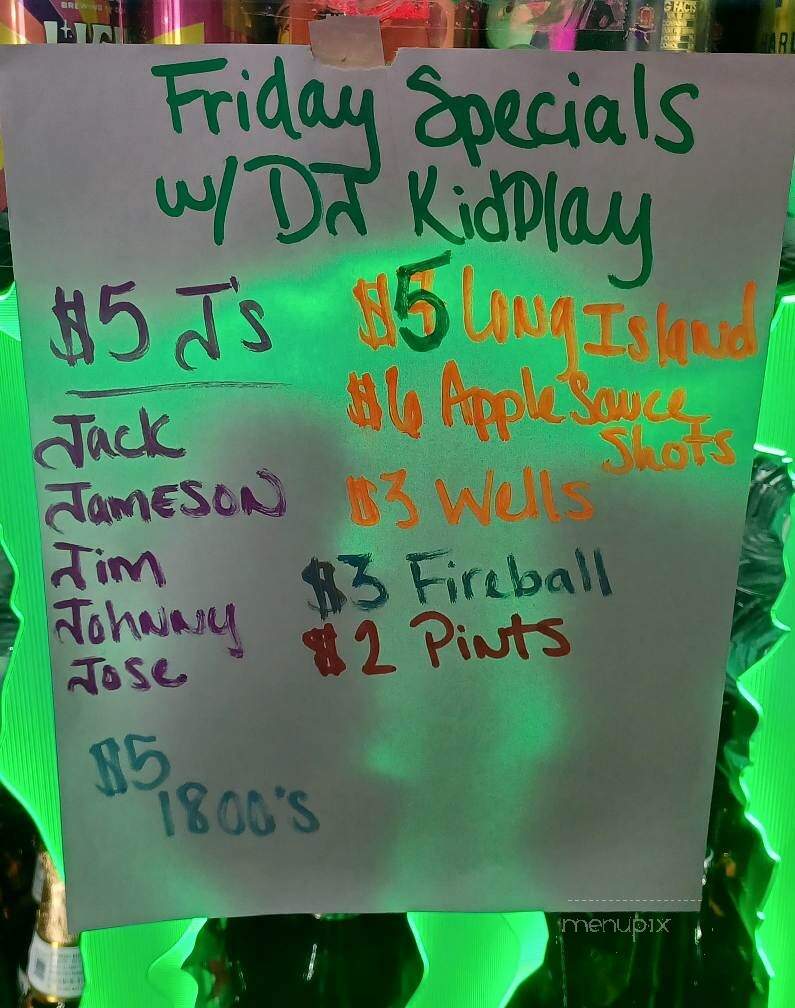 BREWING
FACTS
Friday Specials
w/ DJ KidPlay
$5 J's
Jack
JAMESON
Jim
Johnny
Jose
$5
1800's
$5 Long Island
$6 Apple Sauce
Shots
$3 Wells
$3 Fireball
$2 Pints
menupix